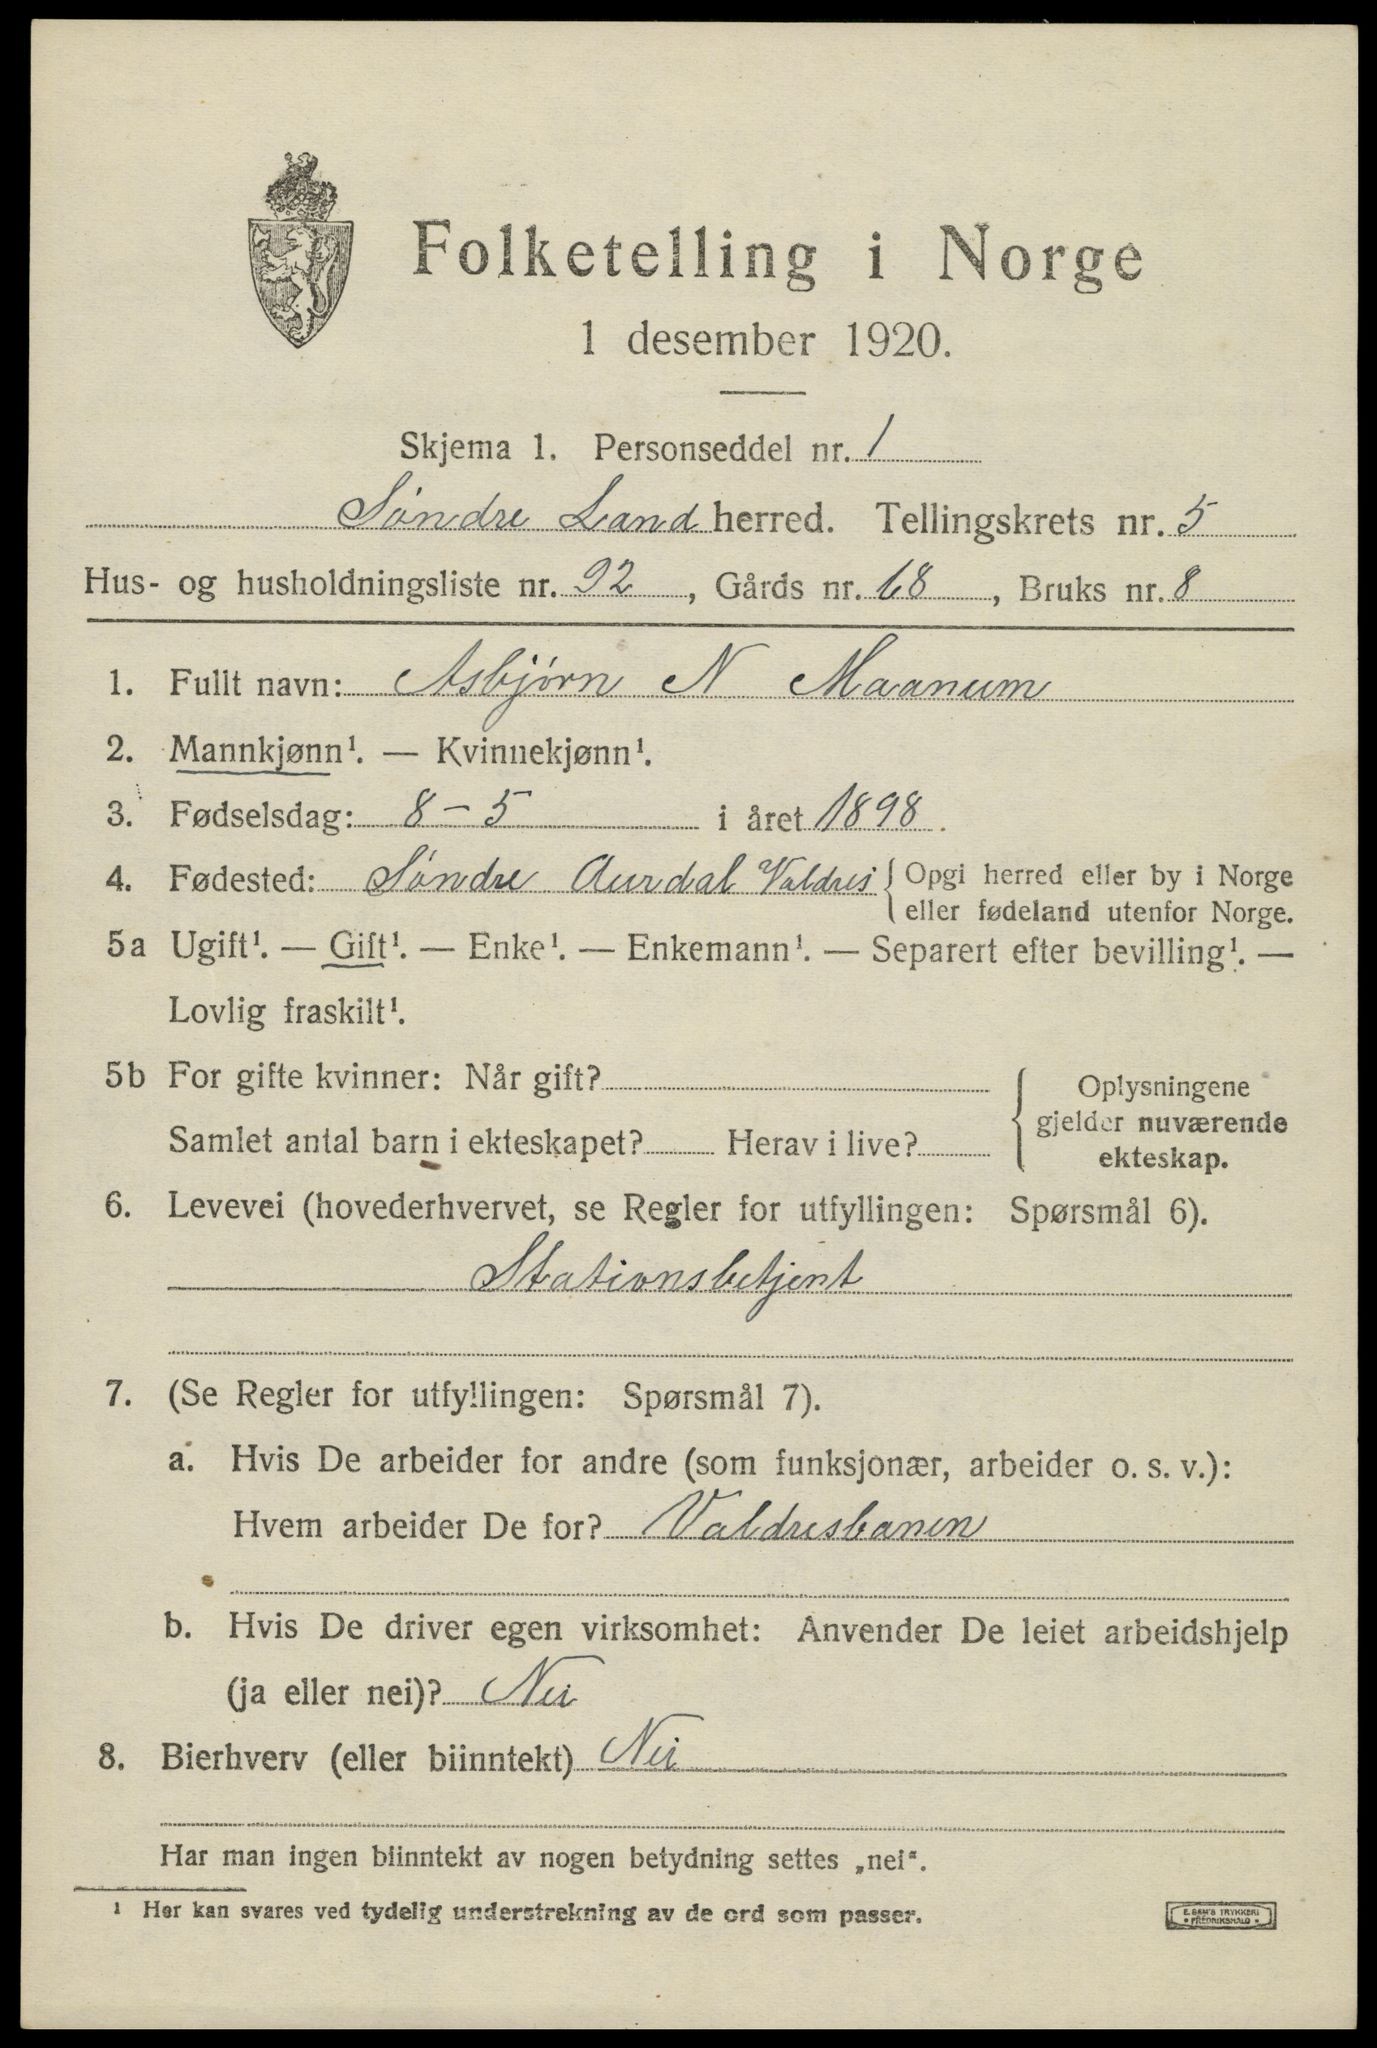 Folketelling i Norge
1 desember 1920.
Skjema 1. Personseddel nr. 1
Søndre Land herred. Tellingskrets nr. 5
Hus- og husholdningsliste nr. 92, Gårds nr. 68, Bruks nr. 8
1. Fullt navn: Asbjørn N Maanum
2. Mannkjønn¹. — Kvinnekjønn¹.
3. Fødselsdag: 8 – 5 i året 1898.
4. Fødested: Søndre Aurdal Valdres { Opgi herred eller by i Norge
eller fødeland utenfor Norge.
5a Ugift¹. — Gift¹. — Enke¹. — Enkemann¹. — Separert efter bevilling¹. —
Lovlig fraskilt¹.
5b For gifte kvinner: Når gift?
Samlet antal barn i ekteskapet? Herav i live?
{ Oplysningene
gjelder nuværende
ekteskap.
6. Levevei (hovederhvervet, se Regler for utfyllingen: Spørsmål 6).
Stationsbetjent
7. (Se Regler for utfyllingen: Spørsmål 7).
a. Hvis De arbeider for andre (som funksjonær, arbeider o. s. v.):
Hvem arbeider De for? Valdresbanen
b. Hvis De driver egen virksomhet: Anvender De leiet arbeidshjelp
(ja eller nei)? Nei
8. Bierhverv (eller biinntekt) Nei
Har man ingen biinntekt av nogen betydning settes „nei“.
¹ Her kan svares ved tydelig understrekning av de ord som passer.
E. SEM'S TRYKKERI
• FREDRIKSHALD •